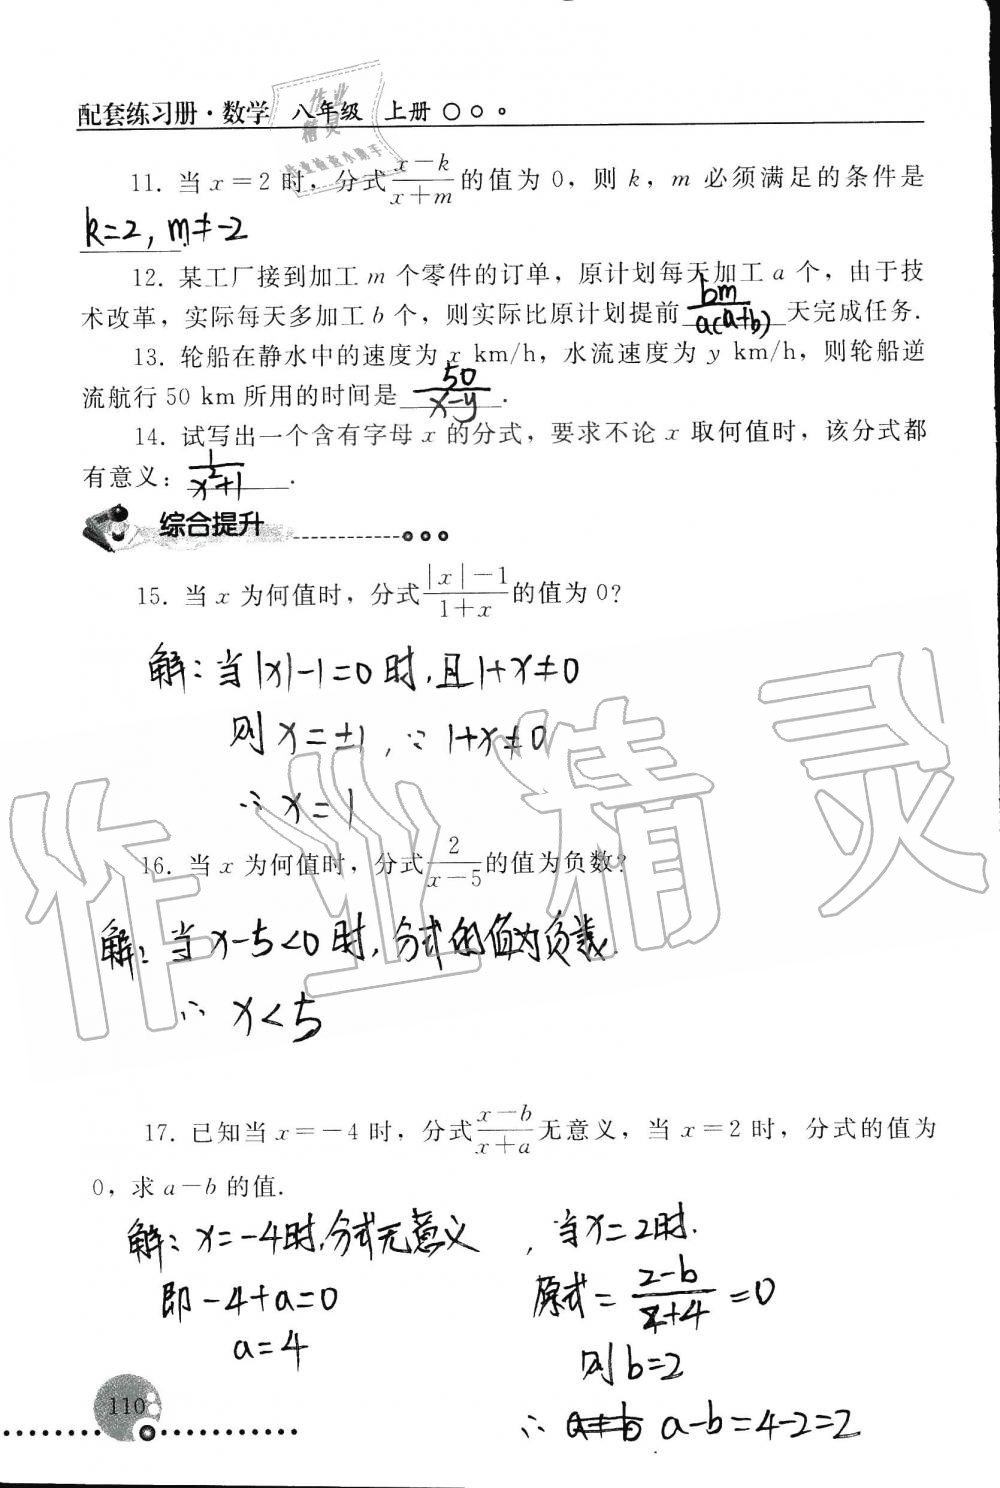 配套练习册·数学 八年级 上册
作业
精灵
作业检查小助手
11. 当 x=2 时，分式 (x-k)/(x+m) 的值为 0，则 k，m 必须满足的条件是
k=2, m≠-2.
12. 某工厂接到加工 m 个零件的订单，原计划每天加工 a 个，由于技
术改革，实际每天多加工 b 个，则实际比原计划提前 bm/a(a+b) 天完成任务.
13. 轮船在静水中的速度为 x km/h，水流速度为 y km/h，则轮船逆
流航行 50 km 所用的时间是 50/(x-y).
14. 试写出一个含有字母 x 的分式，要求不论 x 取何值时，该分式都
有意义：1/(x²+1).
综合提升
15. 当 x 为何值时，分式 (|x|-1)/(1+x) 的值为 0?
解：当|x|-1=0时,且1+x≠0
则x=±1, ∵1+x≠0
∴x=1
16. 当 x 为何值时，分式 2/(x-5) 的值为负数?
解：当x-5<0时,分式的值为负数.
∴x<5
17. 已知当 x=-4 时，分式 (x-b)/(x+a) 无意义，当 x=2 时，分式的值为
0，求 a-b 的值.
解：x=-4时,分式无意义, 当x=2时.
即-4+a=0
原式=(2-b)/(2+4)=0
a=4
则b=2
∴ a-b=4-2=2
110
作业精灵